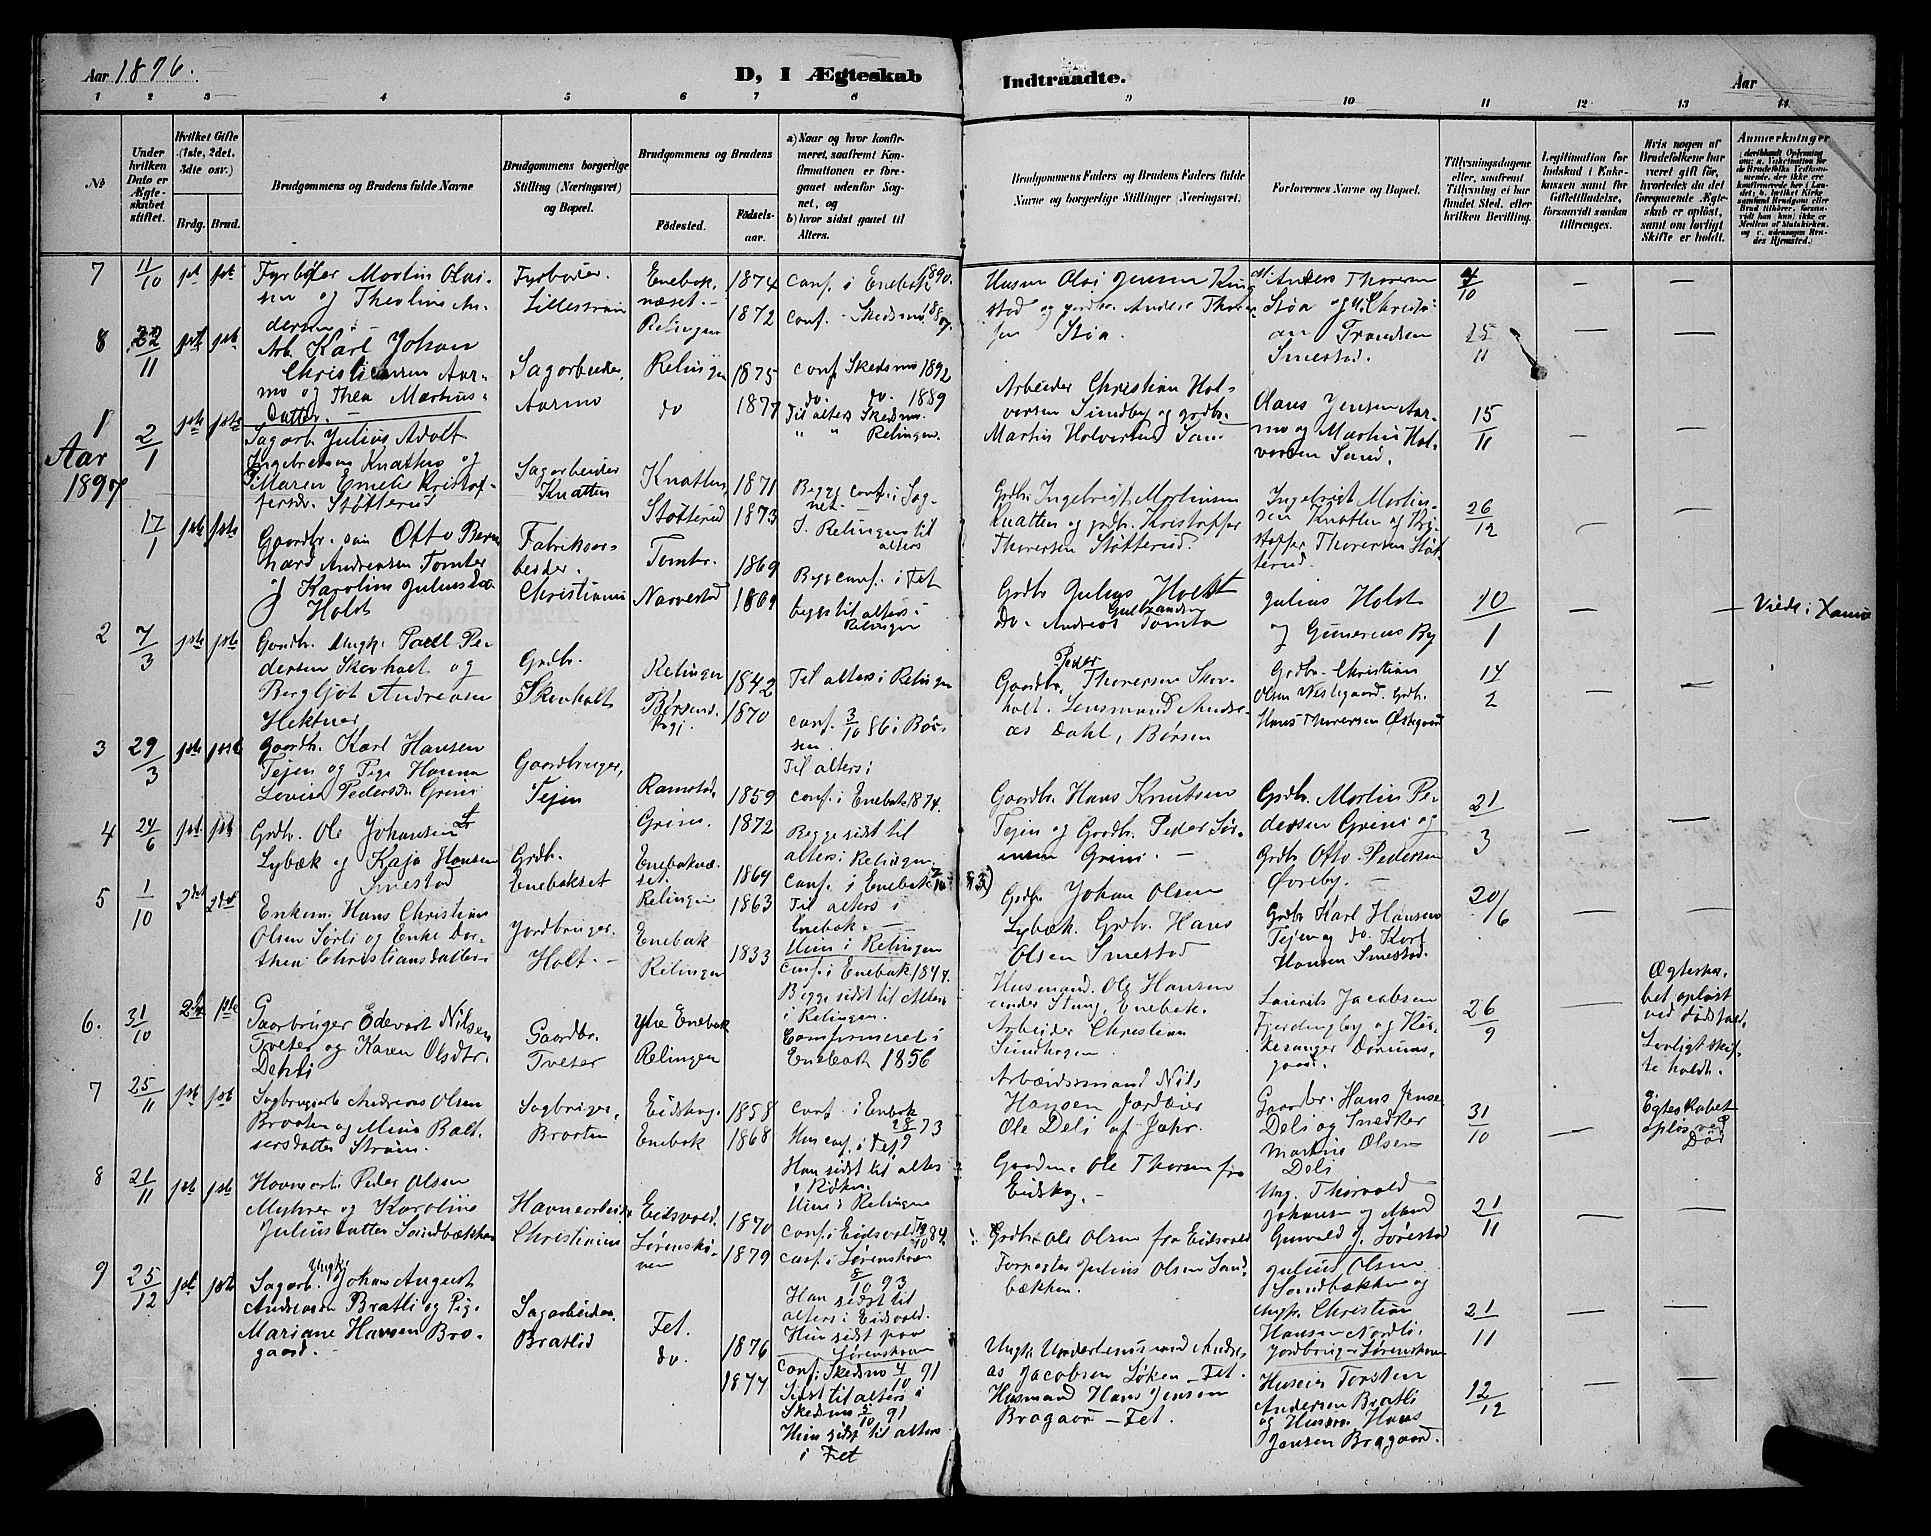 Aar 1896.
D, I Ægteskab
Indtraadte.
Aar
1 2 3 4 5 6 7 8 9 10 11 12 13 14
No
Under hvilken Dato er Ægteskabet stiftet.
Hvilket Gifte (1ste, 2det, 3die osv.)
Brdg. Brud.
Brudgommens og Brudens fulde Navne
Brudgommens borgerlige Stilling (Næringsvei) og Bopæl.
Brudgommens og Brudens
Födested.
Födselsaar.
a) Naar og hvor konfirmeret, saafremt Konfirmationen er foregaaet udenfor Sognet, og
b) hvor sidst gaaet til Alters.
Brudgommens Faders og Brudens Faders fulde Navne og borgerlige Stillinger (Næringsvei).
Forlovernes Navne og Bopæl.
Tillysningsdagene eller, saafremt Tillysning ei har fundet Sted, efter hvilken Bevilling.
Legitimation for Indskud i Enkekassen samt for Giftetilladelse, forsaavidt saadan tiltrænges.
Hvis nogen af Brudefolkene har været gift før, hvorledes da det foregaaende Ægteskab er opløst, samt om lovligt Skifte er holdt.
Anmærkninger
7
11/10
1ste 1ste
Fyrbøder Martin Olaisen og Theoline Andersen
Fyrbøder. Lillestrøm
Enebaknæset. – Relingen
1874
1872
Conf. i Enebak 1890.
Conf. Skedsmo 1887.
Husm Olai Jensen Kingstad og grdbr. Anders Thoresen Støa
Anders Thoresen Støa og Christian Trandsen Smestad.
4/10
8
22/11
Arb. Karl Johan Christiansen Aarmo og Thea Martinusdatter. –
Sagarbeider, Aarmo
Relingen
do
1875
1877
Conf. Skedsmo 1892
do. do. 1889
Til alters Skedsmo.
" " Relingen.
Arbeider Christian Halvorsen Sundby og grdbr. Martin Halvorsen Sand
Claus Jensen Aarmo og Martin Halvorsen Sand.
15/11
25/11
Aar 1897
1
2/1
Sagarb. Julius Adolf Ingebretsen Knatten og Pi Maren Emelie Kristoffersdr. Støtterud
Sagarbeider Knatten
Knatten,
Støtterud
1871
1873
Begge conf. i Sognet. –
I Relingen til alters
Grdbr. Ingebrigt Martinsen Knatten og grdbr. Kristoffer Thoresen Støtterud.
Ingebrigt Martinsen Knatten og Kristoffer Thoresen Støtterud.
26/12
17/1
Gaardbr. søn Otto Bernhard Andreasen Tomter og Karoline Juliusdr. Holst
Fabriksarbeider. Christiania
Tomtr.
Narvestad
1869
1869
Begg conf. i Fet
begge til alters i Relingen
Grdbr Julius Holst
do. Andreas Gulbrandsen Tomta
Julius Holst og Gunerius By
10/1
Viede i Xania
2
7/3
Gaardbr. Ungk. Paul Pedersen Skovholt og Bergljot Andreasen Hektner
Grdbr. Skovholt
Relingen
Børsend Pgj.
1842
1870
Til alters i Relingen
Conf. 3/10 86 i Børsen.
Til alters i
Gaardbr. Peder Thoresen Skovholt. Lensmand Andreas Dahl, Børsen
Grdbr. Christian Olsen Vestgaard. Grdbr. Hans Thoresen Østgaard
14/2
3
29/3
Gaardbr. Karl Hansen Tejen og Pige Hanna Lovise Pedersdr. Grini
Gaardbruger, Tejen
Ramstad,
Grini.
1859
1872
Conf. i Enebak 1874.
Begge sidst til alters i Relingen.
Gaardbr. Hans Knutsen Tejen og Gaardbr. Peder Sørensen Grini. –
Grdbr. Martin Pedersen Grini og Grdbr Otto Pedersen Øvreby. –
21/3
4
24/6
Grdbr. Ole Johansen Lybæk og Kaja Hansen Smestad
Grdbr. Enebakset
Enebaknæset.
Relingen
1869
1863
Conf. i Enebak
Til alters i Enebak. –
Hun i Relingen
Grdbr Johan Olsen Lybæk. Grdbr. Hans Olsen Smestad
Grdbr Karl Hansen Tejen og do. Karl Hansen Smestad.
20/6
5
1/10
2det 2det
Enkem. Hans Christian Olsen Sørli og Enke Dorthea Christiansdatter
Jordbruger. Holt. –
Enebak
Relingen
1833
Conf. i Enebak 1847.
Begge sidst til Alters i Relingen.
Husmand. Ole Hansen under Stang, Enebak.
Arbeider Christian Sundhagen.
Laurits Jacobsen Fjerdingby og
26/9
Ægteskabet opløst ved dødsfald. Lovligt skifte holdt.
6.
31/10
Gaarbruger Edevart Nilsen Tveter og Karen Olsdtr. Dehli
Gaardbr. Tveter
Ytre Enebak
Relingen
Comfirmeret i Enebak 1856
Arbeidsmand Nils Hansen
Ole Deli af
Gaardbr. Hans Jensen Deli og Snedker Martin Olsen Deli
31/10
Egteskabet opløs ved Död
7
25/11
Sagbrugarb Andreas Olsen Braaten og Mina Baltsersdatter Strøm.
Sagbruger, Braaten
Eidskog.
Enebak
1858
1868
Conf. i Enebak 28/9 73
Hun conf. i Fet,
Han sidst til alters i
Hun i Relingen
Gaardm. Ole Thorsen fra Eidskog. –
Ung. Thorvald Johansen og Gunvald J. Lørestad
21/11
8
21/11
Havnearb. Peder Olsen Myhrer og Karoline Juliusdatter Sandbækken
Havnearbeider Christiania
Eidsvold.
Lørenskoven
1870
1879
Conf. i Eidsvold 19/10 84.
Conf. i Lørenskoven 8/10 93
Han sidst til alters i Eidsvold.
Hun sidst paa Lørenskoven
Grdbr. Ole Olsen fra Eidsvold
Forpagter Julius Olsen Sandbækken.
Julius Olsen Sandbækken og Ungk. Christian Hansen Nordli, Jordbruger Lørenskoven
21/11
9
25/12
Sagarb. Ungk Johan August Andreasen Bratli og Pige Mariane Hansen Bragaard. –
Sagarbeider Bratlid
Fet.
do.
1876
1877
Conf. Skedsmo 4/10 91
Sidst til alters i Skedsmo 5/10 91
Hun sidst til alters i Fet
Ungk. Andreas Jacobsen Løken – Fet.
Husmand Hans Jensen Bragaard – Fet.
Huseier Torsten Andersen Bratli og Husm. Hans Jensen Bragaard.
12/12